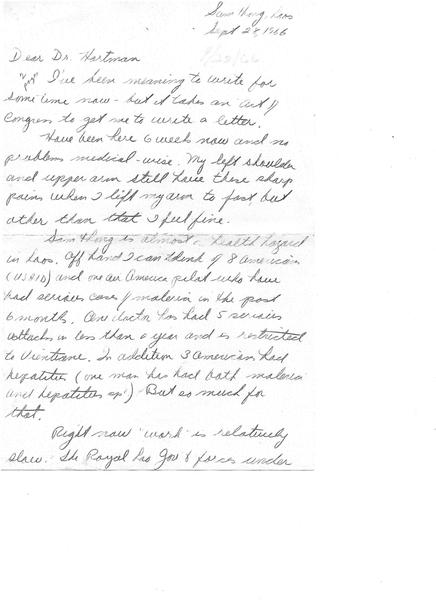 Sam Thong, Laos
Sept 28, 1966
9/28/66
Dear Dr. Hartman
I've been meaning to write for
some time now - but it takes an "act of
Congress to get me to write a letter.
Have been here 6 weeks now and no
problems medical-wise. My left shoulder
and upper arm still have these sharp
pains when I lift my arm to fast but
other than that I feel fine.
Sam Thong is almost a health hazard
in Laos. Off hand I can think of 8 Americans
(USAID) and one Air America pilot who have
had serious case of malaria in the past
6 months. One doctor has had 5 serious
attacks in less than a year and is restricted
to Vientiane. In addition 3 Americans had
hepatitis (one man has had both malaria
and hepatitis) But so much for
that.
Right now "work" is relatively
slow. The Royal Lao Gov't forces under